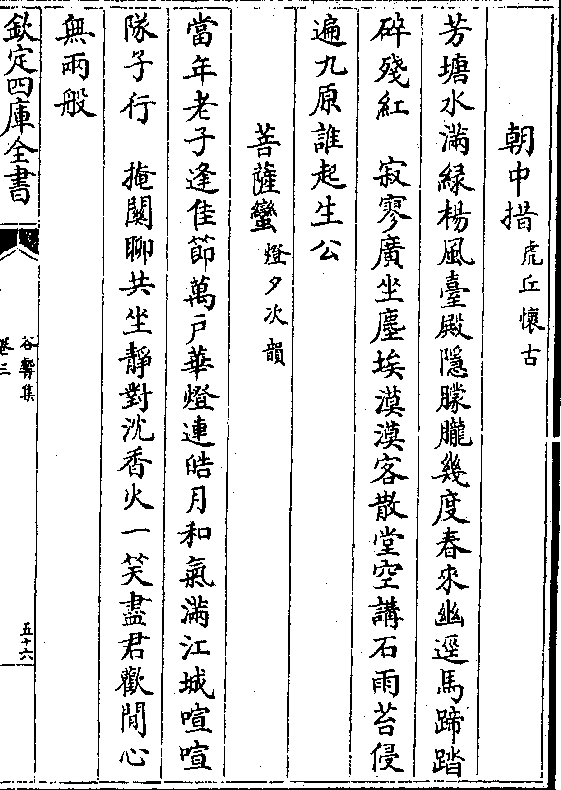 朝中措虎丘懷古
芳塘水滿綠楊風臺殿隱朦朧幾度春來幽逕馬蹄踏
碎殘紅　寂寥廣坐塵埃漠漠客散堂空講石雨苔侵
遍九原誰起生公
菩薩蠻燈夕次韻
當年老子逢佳節萬戶華燈連皓月和氣滿江城喧喧
隊子行　掩關聊共坐靜對沈香火一笑盡君歡閒心
無兩般
欽定四庫全書
谷響集
卷三
五十六